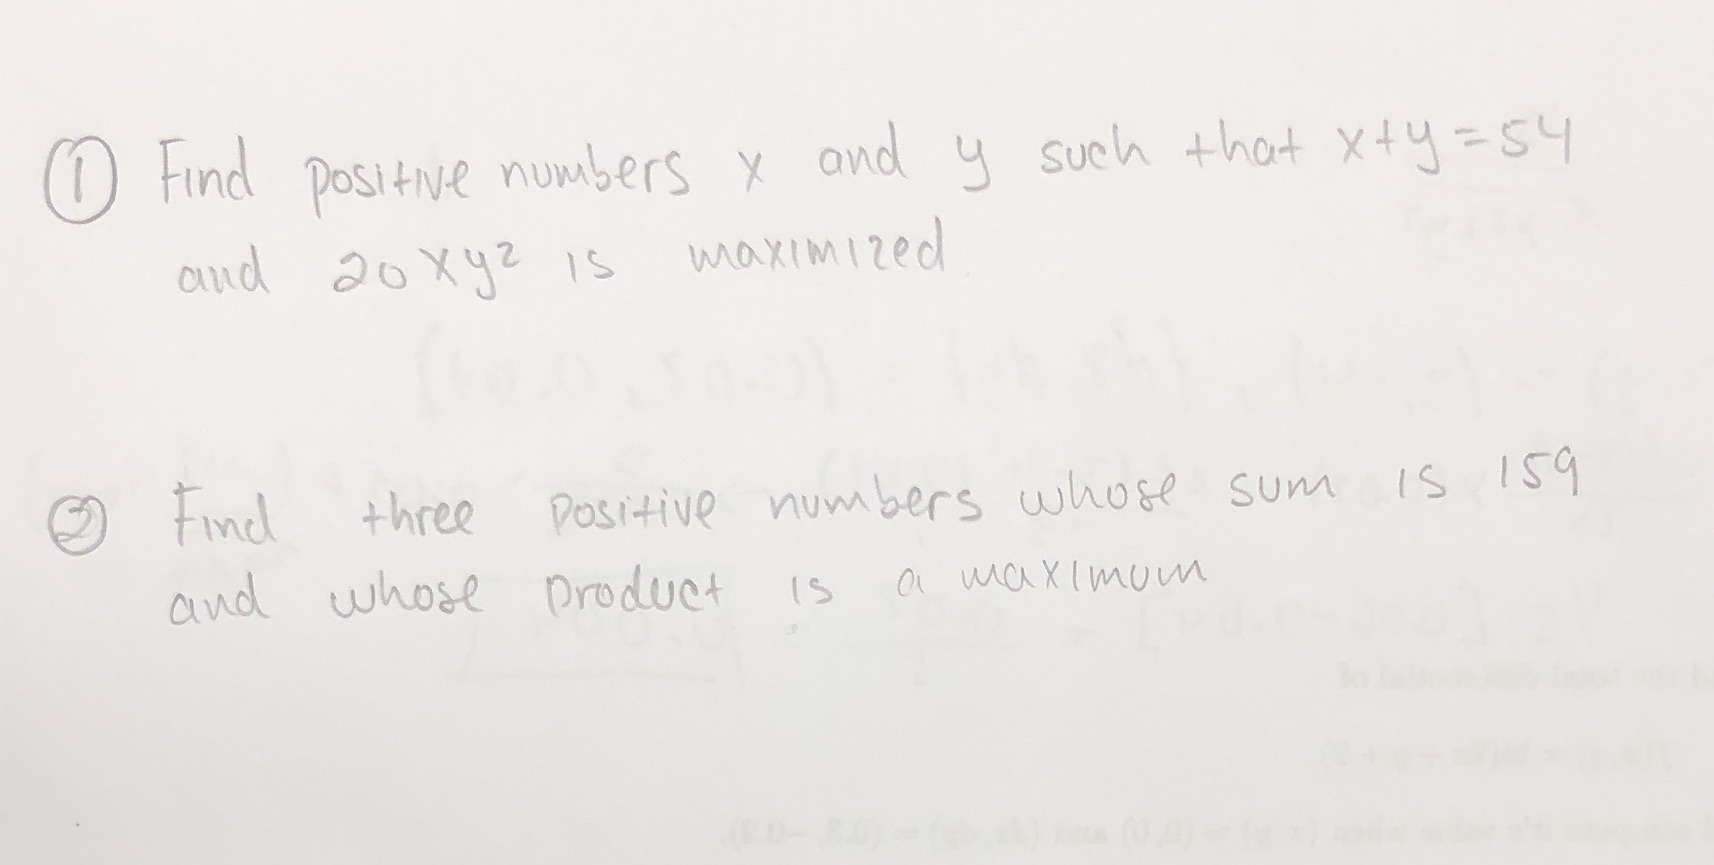 ① Find positive numbers x and y such that x+y=54
and 20xy² is maximized
② Find three positive numbers whose sum is 159
and whose product is a maximum